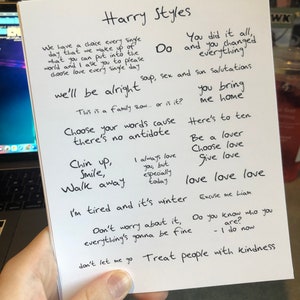 Harry Styles
We have a choice every single
day that we wake up of
what you can put into the
world and I ask you to please
choose love every single day
Do
You did it all,
and you changed
everything!
soap, sex and sun salutations
we'll be alright
you bring
me home
This is a family show... or is it?
Choose your words cause
there's no antidote
Here's to ten
Be a lover
Choose love
Give love
Chin up,
Smile,
Walk away
I always love
you but
especially
today
love love love
I'm tired and it's winter
Excuse me Liam
Don't worry about it,
everything's gonna be fine
Do you know who you
are?
- I do now
don't let me go
Treat people with kindness